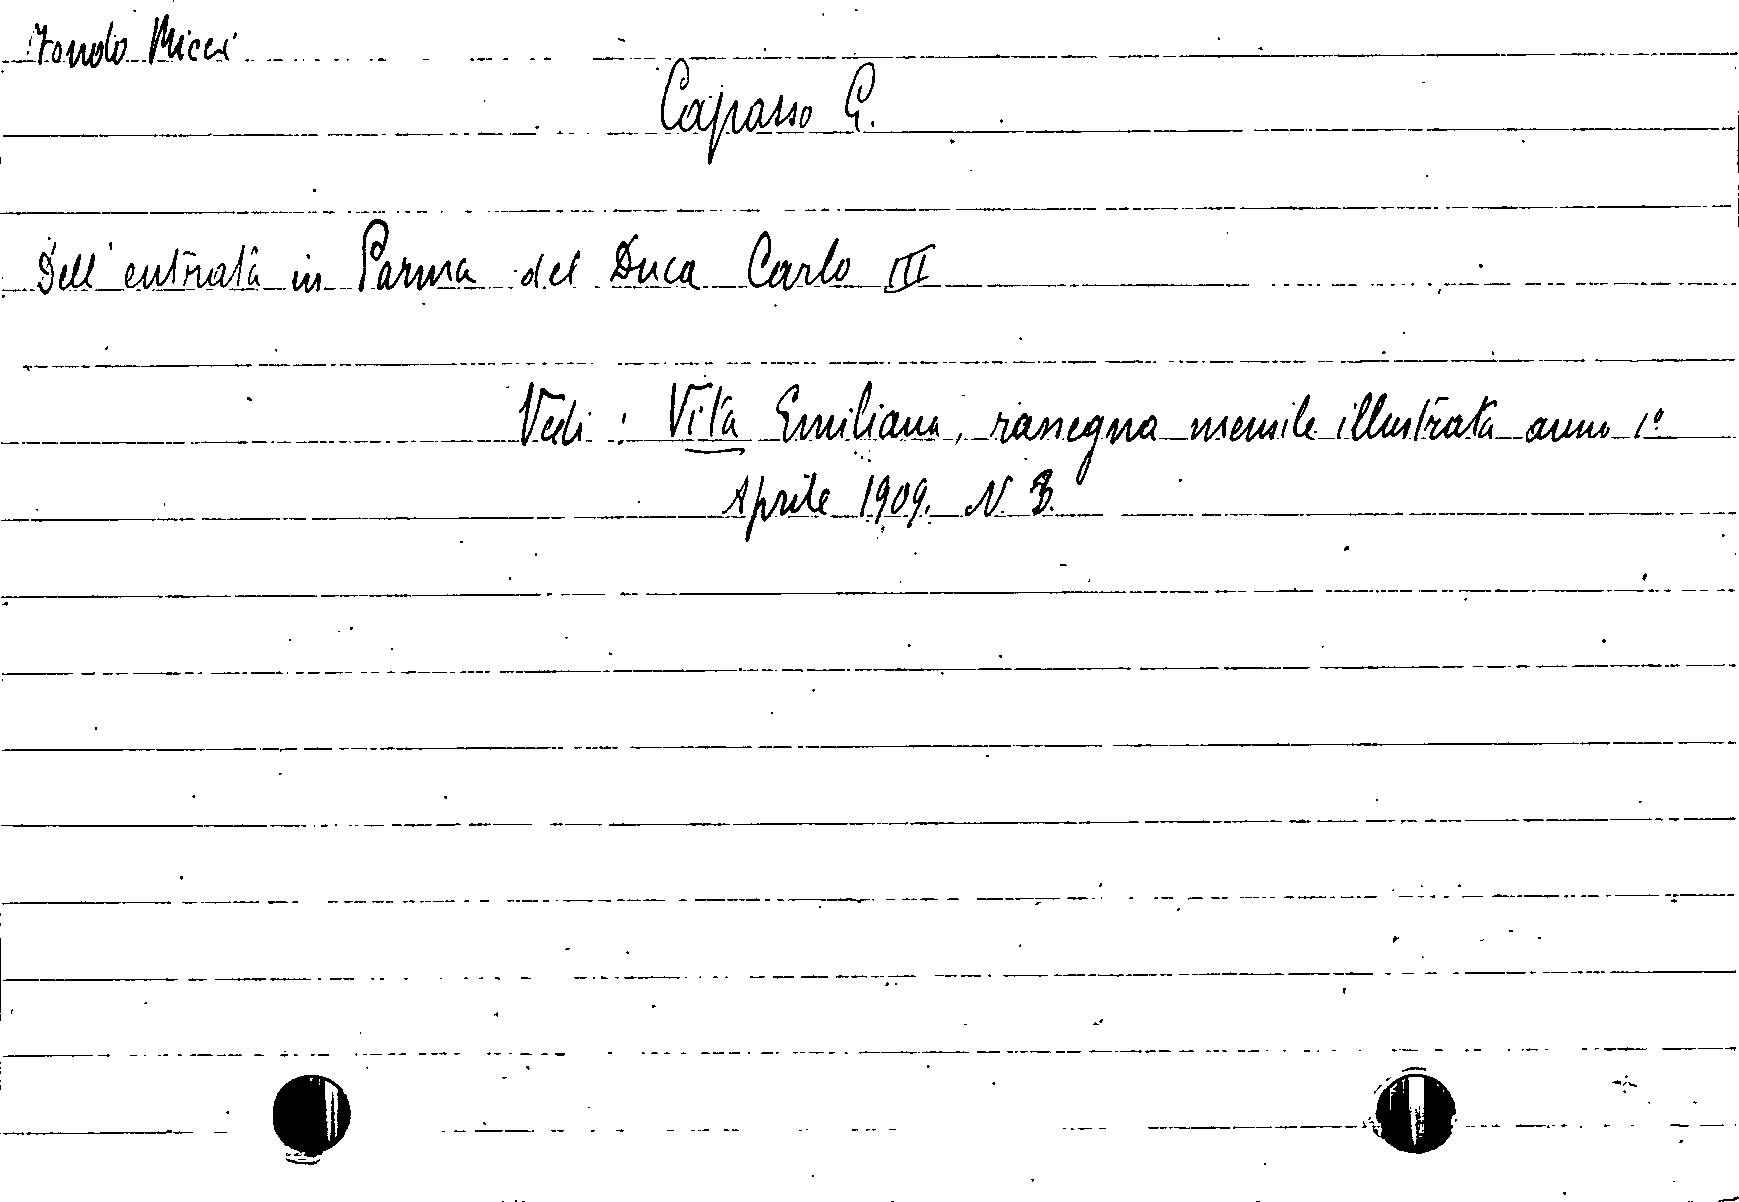 Fondo Micci
Capasso G.
Dell'entrata in Parma del Duca Carlo III
Vedi: Vita Emiliana, rassegna mensile illustrata anno 1º
Aprile 1909. N. 3.